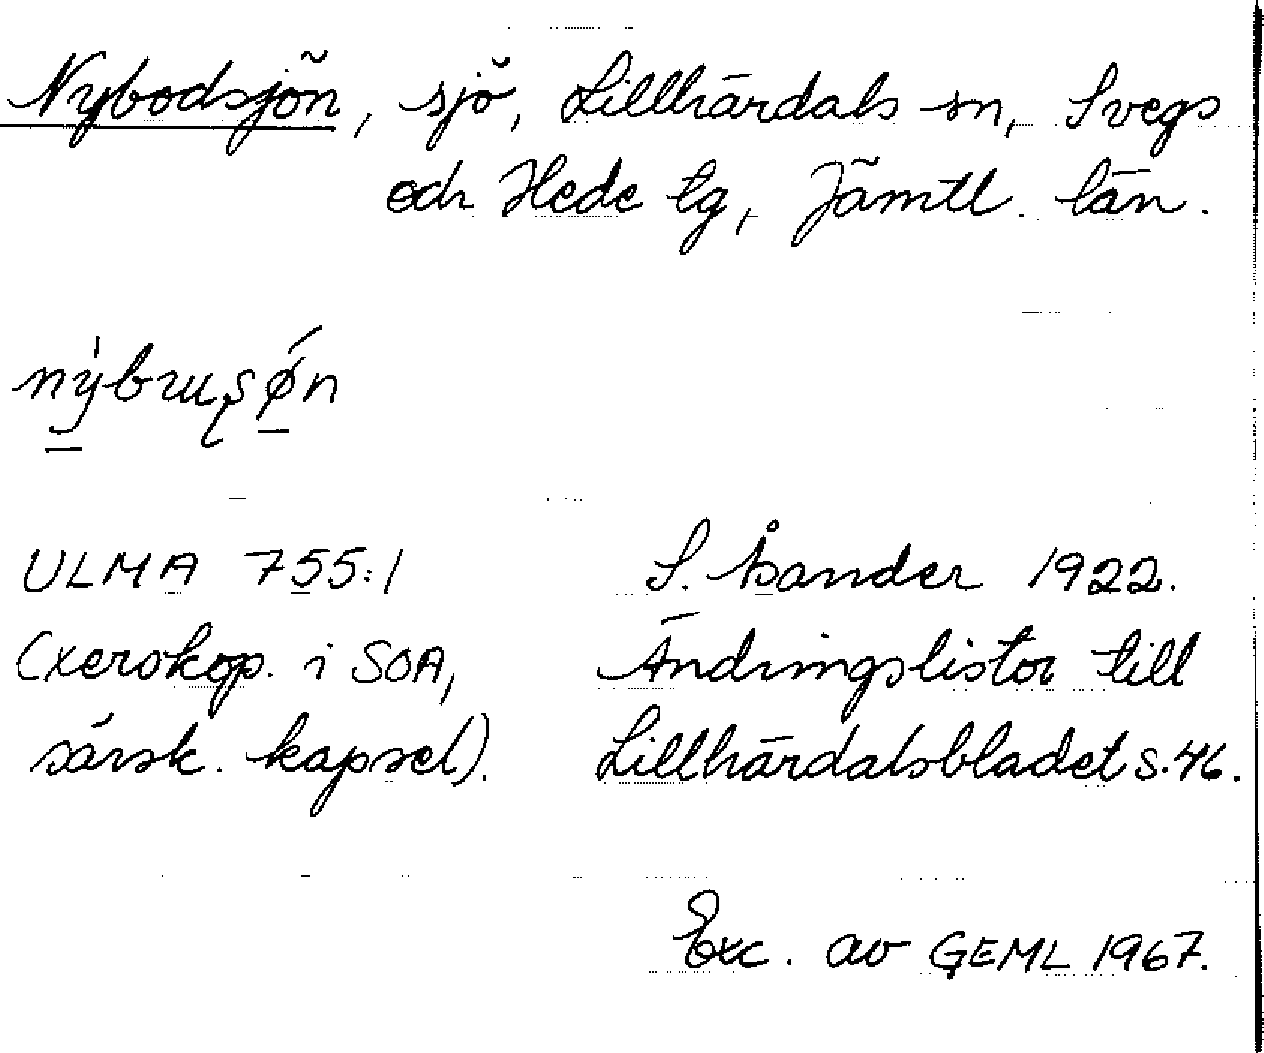 Nybodsjön, sjö, Lillhärdals sn, Svegs
och Hede tg, Jämtl. län.
ULMA 755:1
S. Åsander 1922.
(xerokop. i SOA,
Ändringslistor till
särsk. kapsel).
Lillhärdalsbladet s.46.
Exc. av GEML 1967.